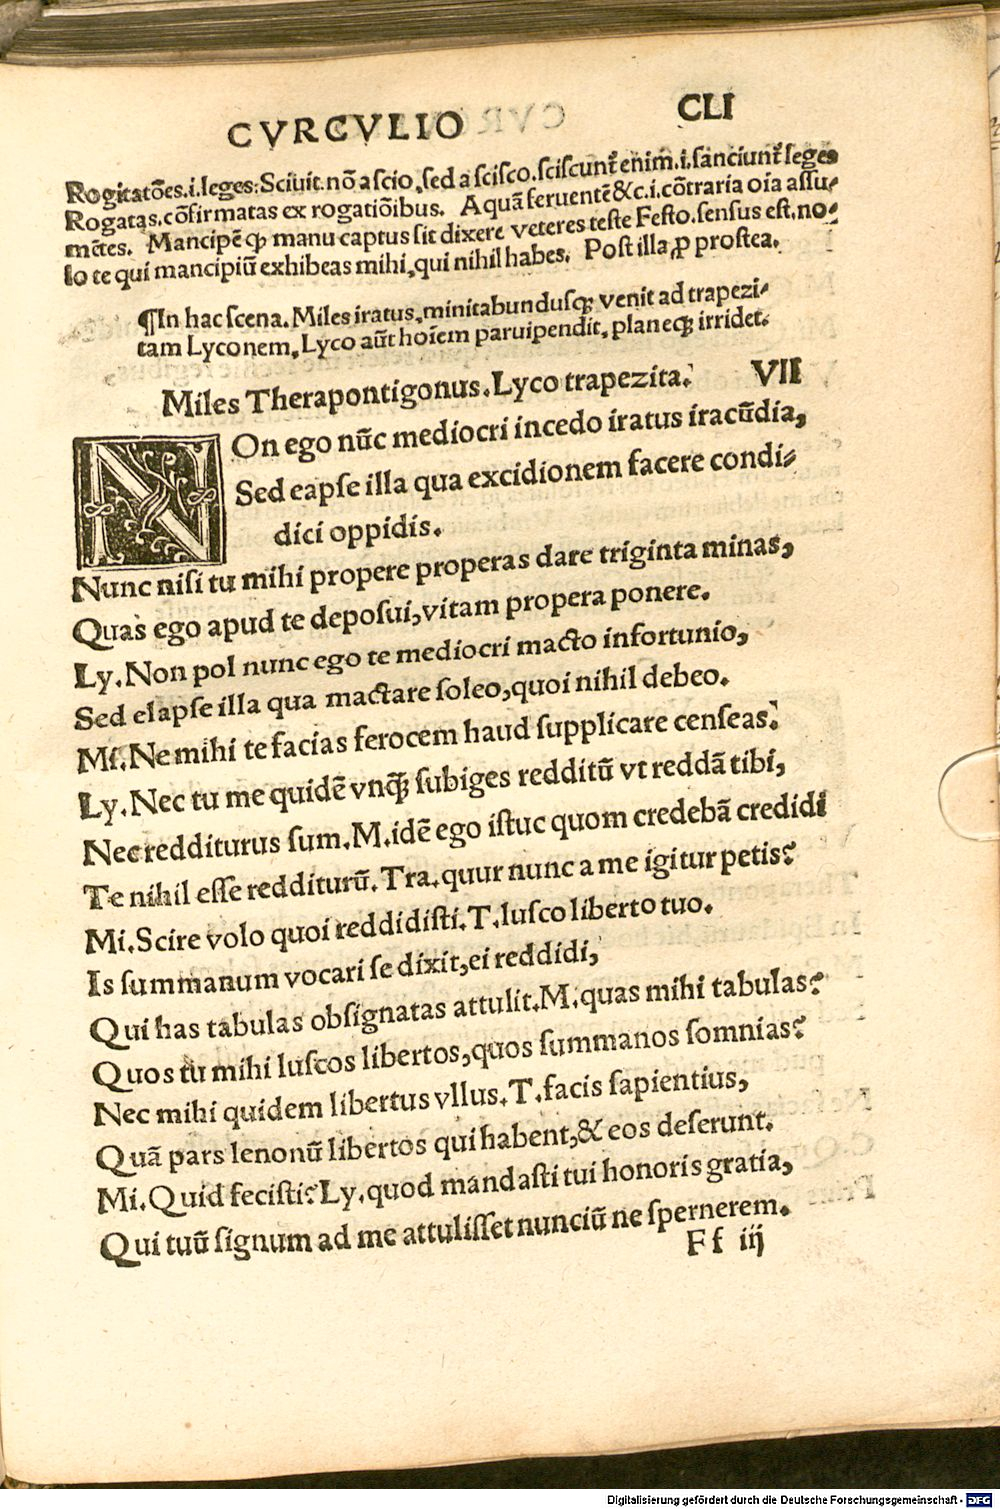 CVRCVLIO CLI
Rogitatões.i.leges:Sciuit.nõ a scio,sed a scisco.sciscunt̃ enim.i.sanciunt̃ leges
Rogatas.cõfirmatas ex rogatiõibus. A quã feruentẽ &c.i.cõtraria oĩa assu⸗
mẽtes. Mancipẽ ꝙ manu captus sit dixere veteres teste Festo.sensus est.no⸗
lo te qui mancipiũ exhibeas mihi,qui nihil habes. Post illa,ꝓ prostea.
¶In hac scena.Miles iratus,minitabundusq; venit ad trapezi⸗
tam Lyconem,Lyco aũt hoĩem paruipendit,planeq; irridet.
Miles Therapontigonus.Lyco trapezita. VII
NOn ego nũc mediocri incedo iratus iracũdia,
Sed eapse illa qua excidionem facere condi⸗
dici oppidis.
Nunc nisi tu mihi propere properas dare triginta minas,
Quas ego apud te deposui,vitam propera ponere.
Ly.Non pol nunc ego te mediocri macto infortunio,
Sed elapse illa qua mactare soleo,quoi nihil debeo.
Mi.Ne mihi te facias ferocem haud supplicare censeas.
Ly.Nec tu me quidẽ vnq̃; subiges redditũ vt reddã tibi,
Nec redditurus sum.M.idẽ ego istuc quom credebã credidi
Te nihil esse redditurũ.Tra.quur nunc a me igitur petis?
Mi.Scire volo quoi reddidisti.T.lusco liberto tuo.
Is summanum vocari se dixit,ei reddidi,
Qui has tabulas obsignatas attulit.M.quas mihi tabulas?
Quos tu mihi luscos libertos,quos summanos somnias?
Nec mihi quidem libertus vllus.T.facis sapientius,
Quã pars lenonũ libertos qui habent,& eos deserunt.
Mi.Quid fecisti?Ly.quod mandasti tui honoris gratia,
Qui tuũ signum ad me attulisset nunciũ ne spernerem.
Ff iij
Digitalisierung gefördert durch die Deutsche Forschungsgemeinschaft - DFG